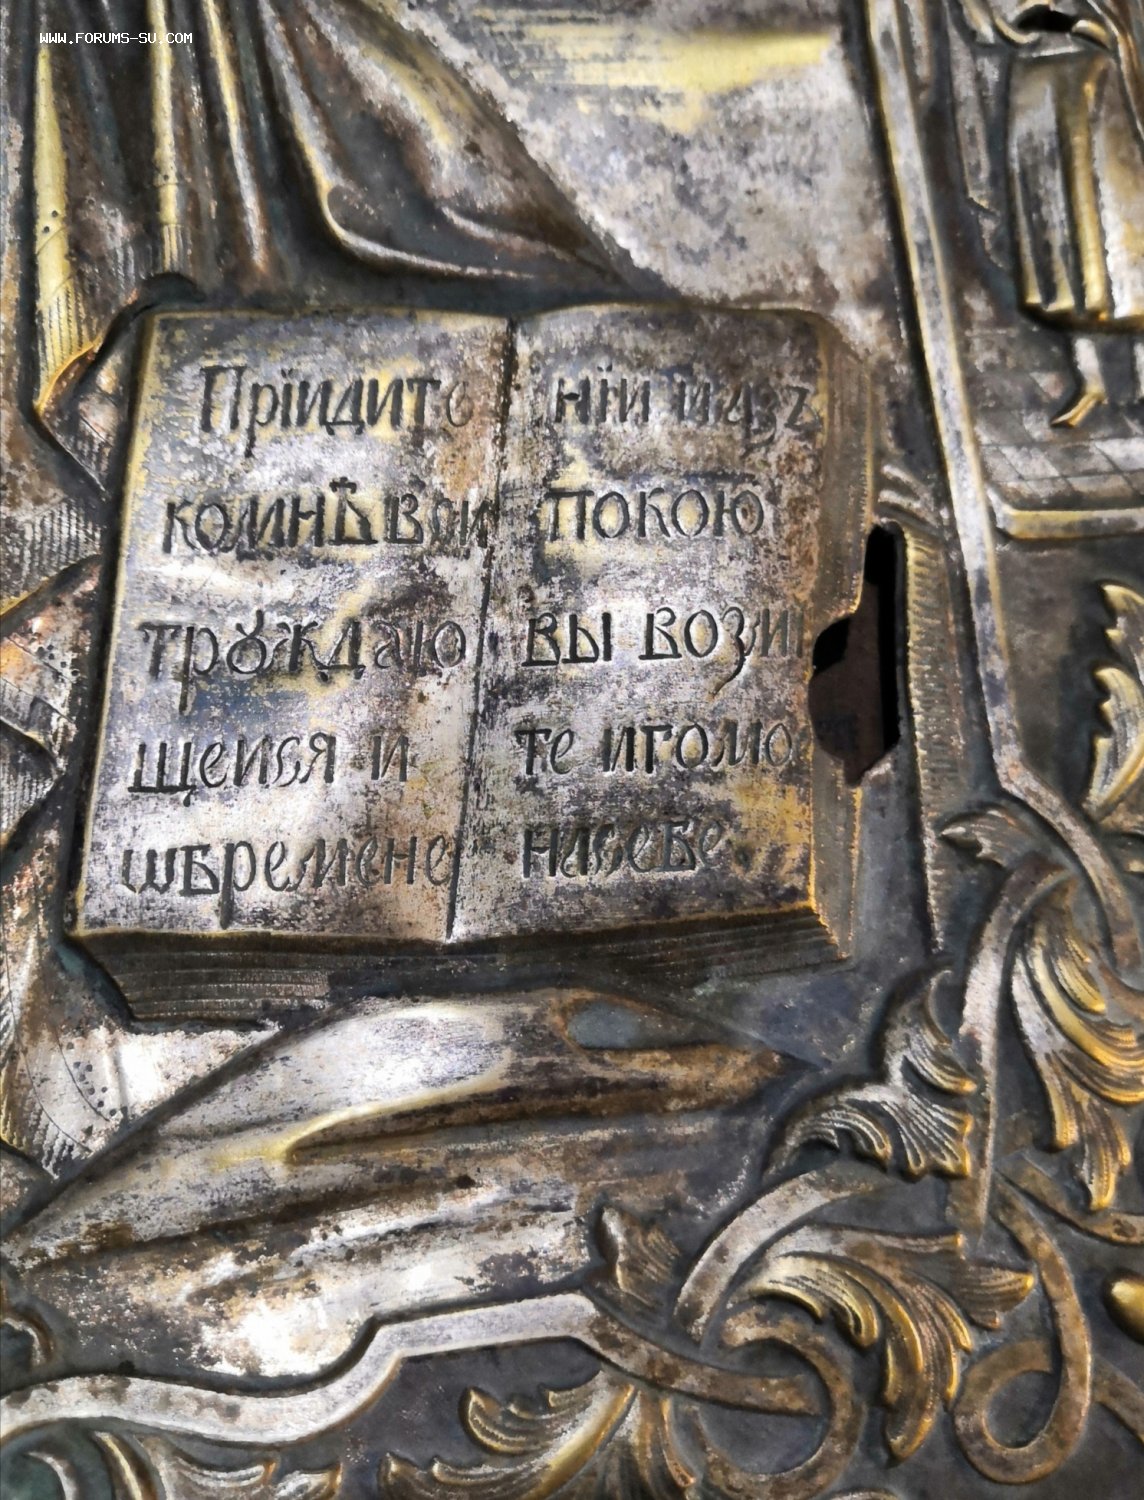 WWW.FORUMS-SU.COM
Прїидите
комнѣ вси
трꙋждаю
щеися и
ѡбремене
нїи и азъ
покою
вы вози
те иго мо
на себе